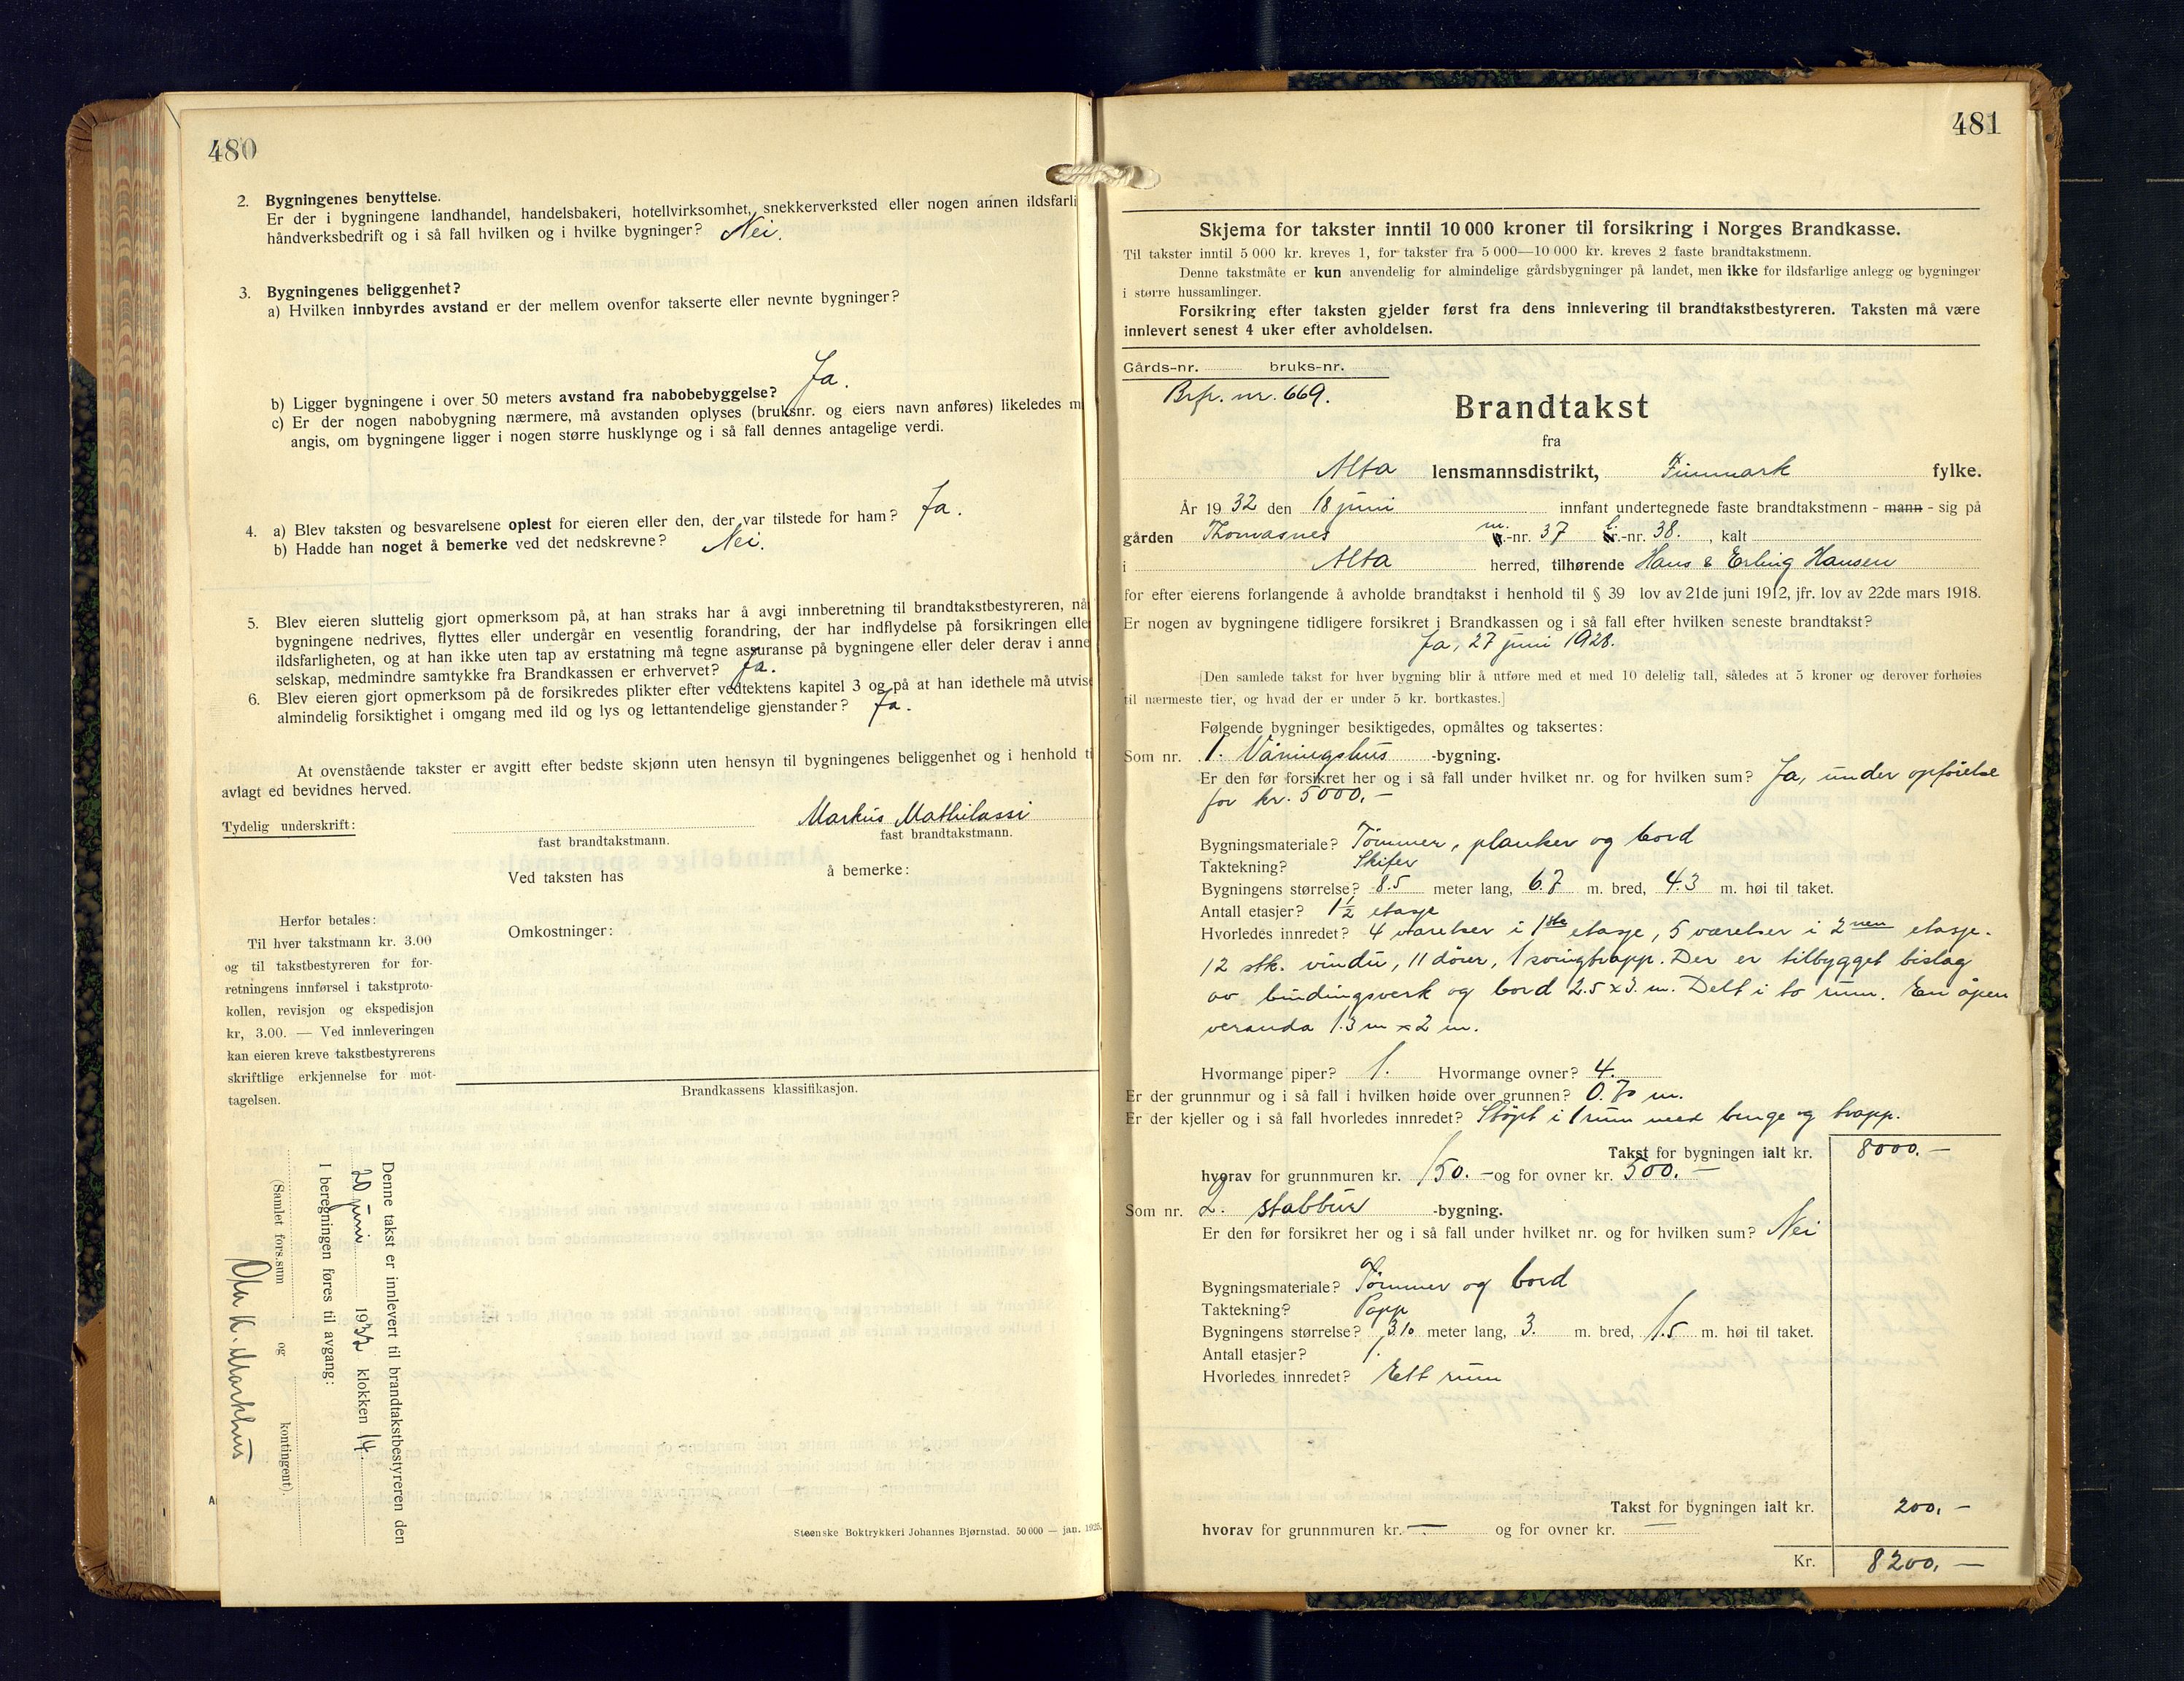 480
2. Bygningenes benyttelse.
Er der i bygningene landhandel, handelsbakeri, hotellvirksomhet, snekkerverksted eller nogen annen ildsfarli
håndverksbedrift og i så fall hvilken og i hvilke bygninger? Nei.
3. Bygningenes beliggenhet?
a) Hvilken innbyrdes avstand er der mellem ovenfor takserte eller nevnte bygninger?
b) Ligger bygningene i over 50 meters avstand fra nabobebyggelse? Ja.
c) Er der nogen nabobygning nærmere, må avstanden oplyses (bruksnr. og eiers navn anføres) likeledes m
angis, om bygningene ligger i nogen større husklynge og i så fall dennes antagelige verdi.
4. a) Blev taksten og besvarelsene oplest for eieren eller den, der var tilstede for ham? Ja.
b) Hadde han noget å bemerke ved det nedskrevne? Nei.
5. Blev eieren sluttelig gjort opmerksom på, at han straks har å avgi innberetning til brandtakstbestyreren, nå
bygningene nedrives, flyttes eller undergår en vesentlig forandring, der har indflydelse på forsikringen elle
ildsfarligheten, og at han ikke uten tap av erstatning må tegne assuranse på bygningene eller deler derav i anne
selskap, medmindre samtykke fra Brandkassen er erhvervet? Ja.
6. Blev eieren gjort opmerksom på de forsikredes plikter efter vedtektens kapitel 3 og på at han idethele må utvise
almindelig forsiktighet i omgang med ild og lys og lettantendelige gjenstander? Ja.
At ovenstående takster er avgitt efter bedste skjønn uten hensyn til bygningenes beliggenhet og i henhold ti
avlagt ed bevidnes herved.
Tydelig underskrift: Markus Mathilassi
fast brandtakstmann. fast brandtakstmann.
Ved taksten has å bemerke:
Omkostninger:
Herfor betales:
Til hver takstmann kr. 3.00
og til takstbestyreren for for-
retningens innførsel i takstproto-
kollen, revisjon og ekspedisjon
kr, 3.00. — Ved innleveringen
kan eieren kreve takstbestyrerens
skriftlige erkjennelse for mot-
tagelsen.
Brandkassens klassifikasjon.
Denne takst er innlevert til brandtakstbestyreren den
20 juni 1932 klokken 14.
I beregningen føres til avgang:
(Samlet fors.sum og kontingent).
Ola K. Markhus
Steenske Boktrykkeri Johannes Bjørnstad. 50 000 — jan. 1925.
481
Skjema for takster inntil 10 000 kroner til forsikring i Norges Brandkasse.
Til takster inntil 5 000 kr. kreves 1, for takster fra 5 000—10 000 kr. kreves 2 faste brandtakstmenn.
Denne takstmåte er kun anvendelig for almindelige gårdsbygninger på landet, men ikke for ildsfarlige anlegg og bygninger
i større hussamlinger.
Forsikring efter taksten gjelder først fra dens innlevering til brandtakstbestyreren. Taksten må være
innlevert senest 4 uker efter avholdelsen.
Gårds-nr. bruks-nr.
Brp. nr. 669.
Brandtakst
fra
Alta lensmannsdistrikt, Finnmark fylke.
År 1932 den 18 juni innfant undertegnede faste brandtakstmenn - mann - sig på
gården Thomasnes m.-nr. 37 l.-nr. 38. , kalt
i Alta herred, tilhørende Hans & Erling Hansen
for efter eierens forlangende å avholde brandtakst i henhold til § 39 lov av 21de juni 1912, jfr. lov av 22de mars 1918.
Er nogen av bygningene tidligere forsikret i Brandkassen og i så fall efter hvilken seneste brandtakst?
Ja, 27 juni 1928.
[Den samlede takst for hver bygning blir å utføre med et med 10 delelig tall, således at 5 kroner og derover forhøies
til nærmeste tier, og hvad der er under 5 kr. bortkastes.]
Følgende bygninger besiktigedes, opmåltes og taksertes:
Som nr. 1. Våningshus -bygning.
Er den før forsikret her og i så fall under hvilket nr. og for hvilken sum? Ja, under opførelse
for kr. 5000.-
Bygningsmateriale? Tømmer, planker og bord
Taktekning? Skifer
Bygningens størrelse? 8.5 meter lang, 6.7 m. bred, 4.3 m. høi til taket.
Antall etasjer? 1½ etasje
Hvorledes innredet? 4 værelser i 1ste etasje, 5 værelser i 2nen etasje.
12 stk. vindu, 11 dører, 1 svingtrapp. Der er tilbygget bislag
av bindingsverk og bord 2.5 x 3. m. Delt i to rum. En åpen
veranda 1.3 m x 2 m.
Hvormange piper? 1. Hvormange ovner? 4.
Er der grunnmur og i så fall i hvilken høide over grunnen? 0.70 m.
Er der kjeller og i så fall hvorledes innredet? Støpt i 1 rum med binge og trapp.
Takst for bygningen ialt kr. 8000.—
hvorav for grunnmuren kr. 150.- og for ovner kr. 500.—
Som nr. 2. stabbur -bygning.
Er den før forsikret her og i så fall under hvilket nr. og for hvilken sum? Nei
Bygningsmateriale? Tømmer og bord
Taktekning? Papp
Bygningens størrelse? 3.10 meter lang, 3. m. bred, 1.5 m. høi til taket.
Antall etasjer? 1.
Hvorledes innredet? Ett rum
Takst for bygningen ialt kr. 200.—
hvorav for grunnmuren kr. — og for ovner kr. —
Kr. 8200.—